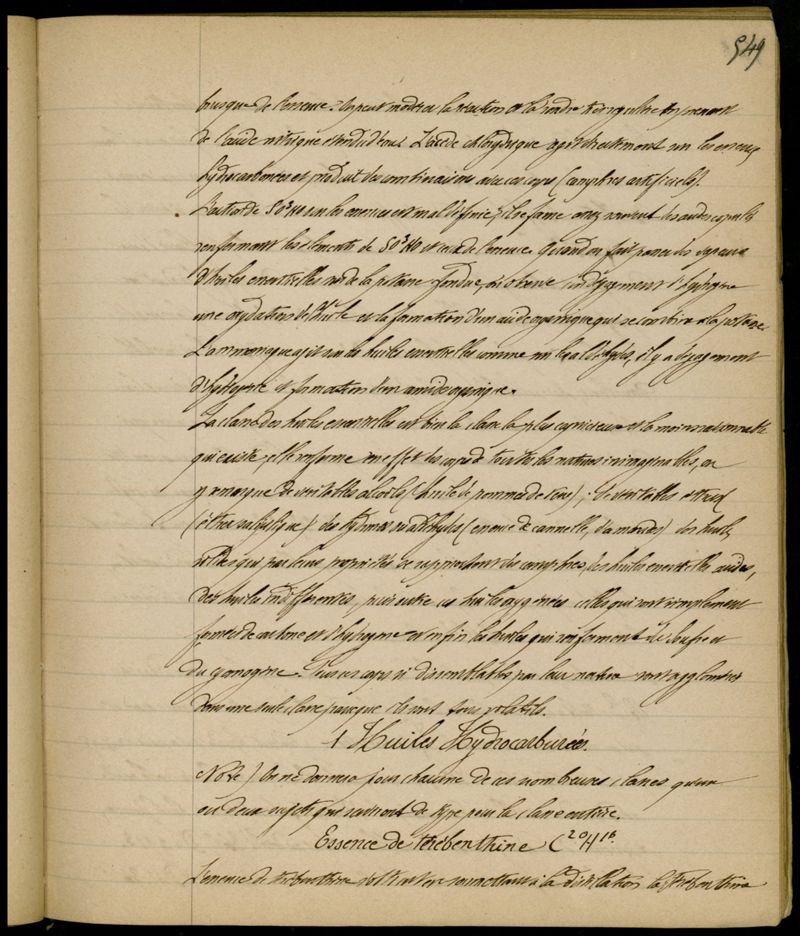 549
brusque de l'essence. On peut modérer la réaction et la rendre très régulière en prenant
de l'acide nitrique étendu d'eau. L'acide chlorhydrique agit directement sur les essences
hydrocarbonées et produit des combinaisons avec ces corps (camphres artificiels).
L'action de SO³HO sur les essences est mal définie, il se forme assez souvent des acides copulés
renfermant les éléments de SO³HO et ceux de l'essence. Quand on fait passer des vapeurs
d'huiles essentielles sur de la potasse fondue, on observe un dégagement d'hydrogène
une oxydation de l'huile et la formation d'un acide organique qui se combine à la potasse.
L'ammoniaque agit sur les huiles essentielles comme sur les aldéhydes, il y a dégagement
d'hydrogène et formation d'un amide organique.
La classe des huiles essentielles est bien la classe la plus capricieuse et la moins raisonnable
qui existe, elle renferme en effet des corps de toutes les natures inimaginables, on
y remarque de véritables alcools (huile de pommes de terre); de véritables éthers
(éther salicylique) des hydrures ou aldéhydes (essence de cannelle, d'amandes) des huiles
qui par leurs propriétés se rapprochent des camphres, des huiles essentielles acides,
des huiles indifférentes, puis outre ces huiles oxygénées celles qui sont simplement
formées de carbone et d'hydrogène et enfin les huiles qui renferment du soufre et
du cyanogène. Tous ces corps si dissemblables par leur nature sont agglomérés
dans une seule classe parce que ils sont tous volatils.
1 Huiles Hydrocarburées.
Nota) On ne donnera pour chacune de ces nombreuses classes qu'un
ou deux sujets qui serviront de type pour la classe entière.
Essence de térébenthine C²⁰H¹⁶.
L'essence de térébenthine s'obtient en soumettant à la distillation la térébenthine